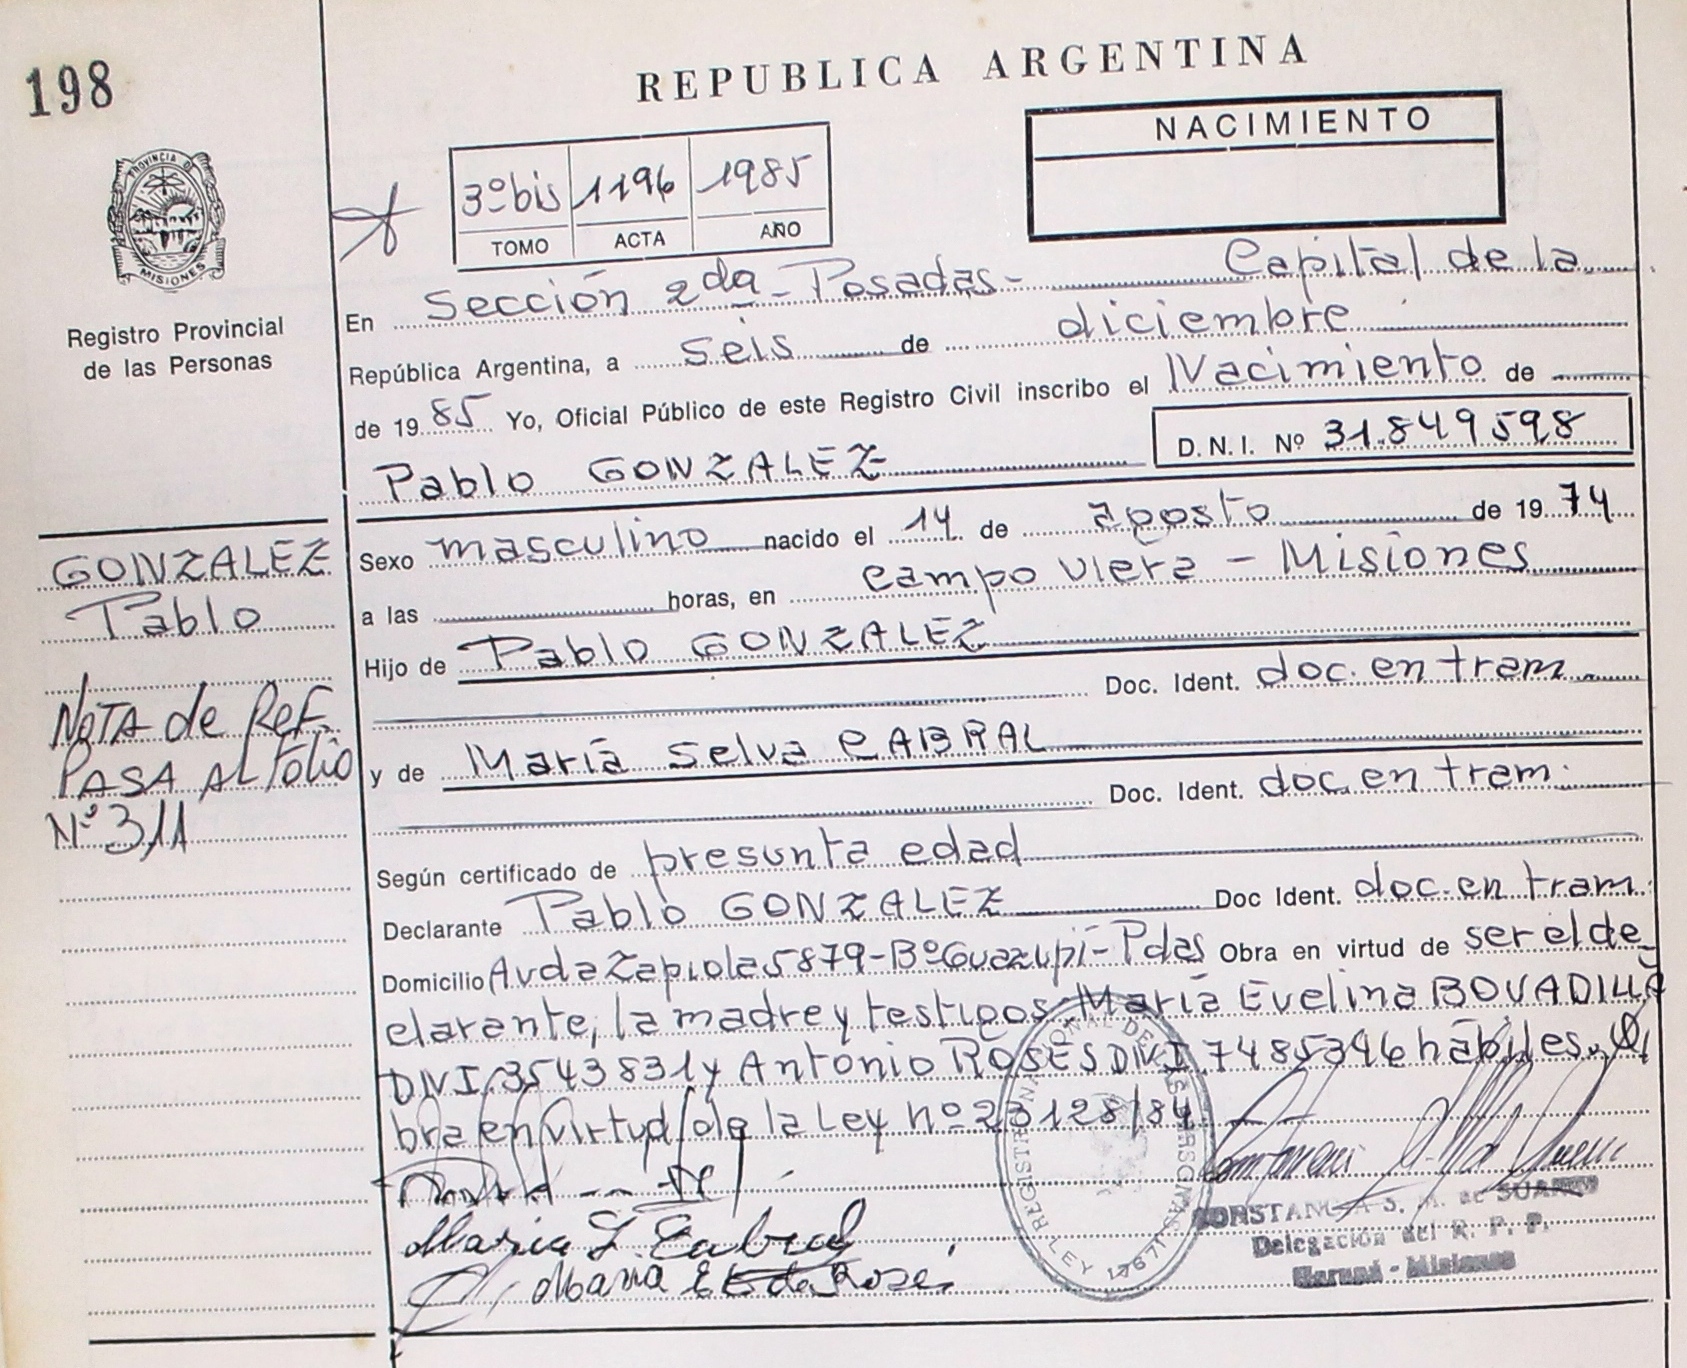 198
REPUBLICA ARGENTINA
NACIMIENTO
3º bis 1196 1985
TOMO ACTA AÑO
PROVINCIA D
MISIONES
Registro Provincial
de las Personas
En Sección 2da - Posadas - Capital de la
República Argentina, a seis de diciembre
de 1985 Yo, Oficial Público de este Registro Civil inscribo el Nacimiento de
Pablo GONZALEZ D.N.I. Nº 31.849598
GONZALEZ
Pablo
Sexo masculino nacido el 14 de agosto de 1974
a las horas, en Campo Viera - Misiones
Hijo de Pablo GONZALEZ
Doc. Ident. doc. en tram
y de María Selva CABRAL
Doc. Ident. doc. en tram.
NOTA de REF.
PASA AL FOLIO
Nº 311
Según certificado de presunta edad
Declarante Pablo GONZALEZ Doc Ident. doc. en tram.
Domicilio Avda Zapiola 5879 - Bº Guazupí - Pdas Obra en virtud de ser el de
clarante, la madre y testigos María Evelina BOVADILLA
DNI. 3543831 y Antonio ROSES DNI. 7485396 hábiles. O
bra en virtud de la Ley nº 23128/84.
Maria S. Cabral
Maria E B de Rose
CONSTANCIA S. M. de SUAREZ
Delegación del R. P. P.
Garupá - Misiones